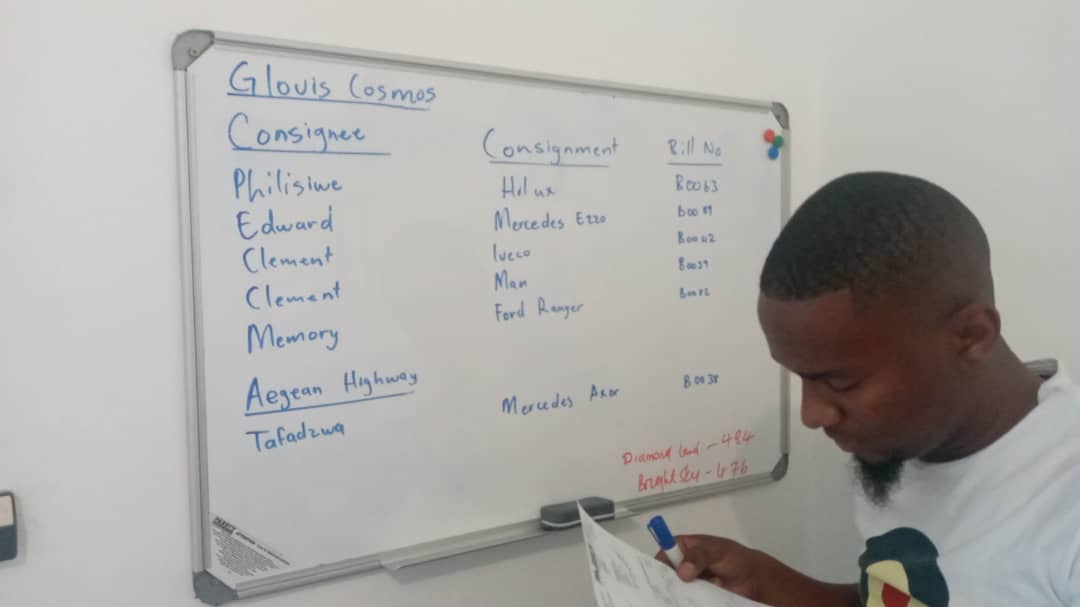 Glovis Cosmos
Consignee Consignment Bill No
Philisiwe Hilux B0063
Edward Mercedes E220 B0089
Clement Iveco B0042
Clement Man B0039
Memory Ford Ranger B0082
Aegean Highway
Tafadzwa Mercedes Axor B0038
Diamond Land - 484
Bright Sky - 676